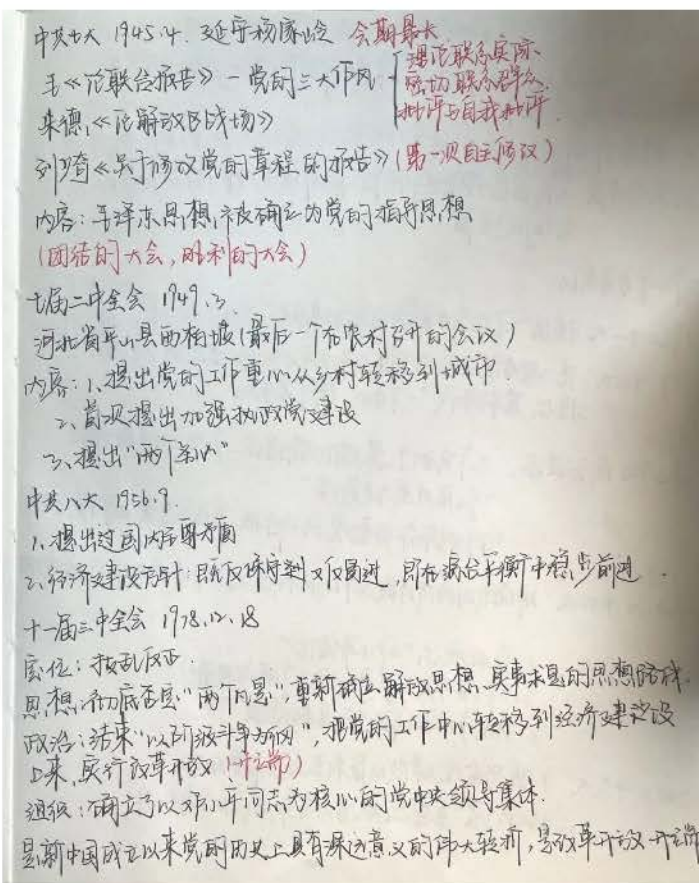 中共七大 1945.4. 延安杨家岭 会期最长
毛《论联合报告》—党的三大作风 理论联系实际
密切联系群众
批评与自我批评
朱德《论解放区战场》
刘少奇《关于修改党的章程的报告》(第一次自主修改)
内容:毛泽东思想被确立为党的指导思想
(团结的大会,胜利的大会)
七届二中全会 1949.3
河北省平山县西柏坡(最后一个在农村召开的会议)
内容:1、提出党的工作重心从乡村转移到城市
2、首次提出加强执政党建设
3、提出“两个务必”
中共八大 1956.9.
1、提出过国内主要矛盾
2、经济建设方针:既反保守到又反冒进,即在综合平衡中稳步前进.
十一届三中全会 1978.12.18
定位:拨乱反正.
思想:彻底否定“两个凡是”,重新确立解放思想、实事求是的思想路线.
政治:结束“以阶级斗争为纲”,把党的工作中心转移到经济建设
上来,实行改革开放(开端)
组织:确立了以邓小平同志为核心的党中央领导集体.
是新中国成立以来党的历史上具有深远意义的伟大转折,是改革开放开端